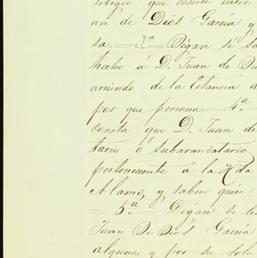 litigio que existe entre
an de Dios Garcia y
sa. = 3.ª Digan si sa
hecho á D. Juan de Di
arriendo de la Estancia a
por que persona. = 4.ª
consta que D. Juan de
tario ó subarrendatario
perteneciente a la Hda
Alamo, y saben quien
= 5.ª = Digan si le
Juan de Dios Garcia
alguna y por se sola